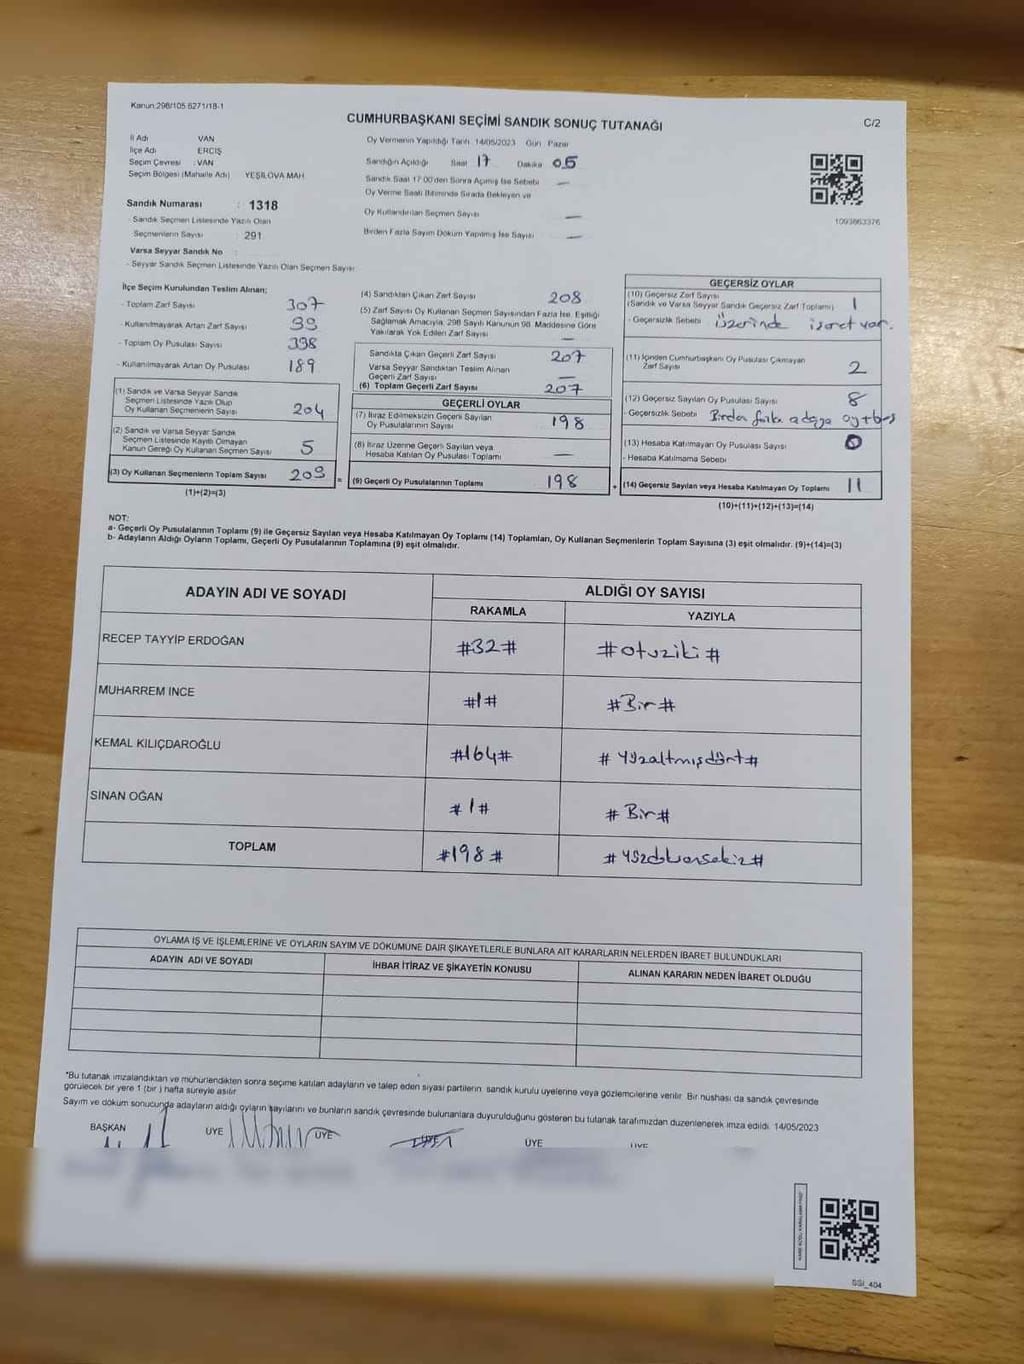 Kanun:298/105 6271/18-1
CUMHURBAŞKANI SEÇİMİ SANDIK SONUÇ TUTANAĞI
C/2
İl Adı VAN
İlçe Adı ERCİŞ
Seçim Çevresi : VAN
Seçim Bölgesi (Mahalle Adı) YEŞİLOVA MAH
Sandık Numarası : 1318
- Sandık Seçmen Listesinde Yazılı Olan
Seçmenlerin Sayısı : 291
Varsa Seyyar Sandık No
- Seyyar Sandık Seçmen Listesinde Yazılı Olan Seçmen Sayısı
Oy Vermenin Yapıldığı Tarih 14/05/2023 Gün Pazar
Sandığın Açıldığı Saat 17 Dakika 05
Sandık Saat 17.00'den Sonra Açılmış İse Sebebi —
Oy Verme Saati Bitiminde Sırada Bekleyen ve
Oy Kullandırılan Seçmen Sayısı —
Birden Fazla Sayım Döküm Yapılmış İse Sayısı —
1093863376
İlçe Seçim Kurulundan Teslim Alınan;
- Toplam Zarf Sayısı 307
- Kullanılmayarak Artan Zarf Sayısı 99
- Toplam Oy Pusulası Sayısı 398
- Kullanılmayarak Artan Oy Pusulası 189
(1) Sandık ve Varsa Seyyar Sandık
Seçmen Listesinde Yazılı Olup
Oy Kullanan Seçmenlerin Sayısı 204
(2) Sandık ve Varsa Seyyar Sandık
Seçmen Listesinde Kayıtlı Olmayan
Kanun Gereği Oy Kullanan Seçmen Sayısı 5
(3) Oy Kullanan Seçmenlerin Toplam Sayısı 209
(1)+(2)=(3)
(4) Sandıktan Çıkan Zarf Sayısı 208
(5) Zarf Sayısı Oy Kullanan Seçmen Sayısından Fazla İse, Eşitliği
Sağlamak Amacıyla, 298 Sayılı Kanunun 98. Maddesine Göre
Yakılarak Yok Edilen Zarf Sayısı —
Sandıkta Çıkan Geçerli Zarf Sayısı 207
Varsa Seyyar Sandıktan Teslim Alınan
Geçerli Zarf Sayısı —
(6) Toplam Geçerli Zarf Sayısı 207
GEÇERLİ OYLAR
(7) İtiraz Edilmeksizin Geçerli Sayılan
Oy Pusulalarının Sayısı 198
(8) İtiraz Üzerine Geçerli Sayılan veya
Hesaba Katılan Oy Pusulası Toplamı —
= (9) Geçerli Oy Pusulalarının Toplamı 198
GEÇERSİZ OYLAR
(10) Geçersiz Zarf Sayısı
(Sandık ve Varsa Seyyar Sandık Geçersiz Zarf Toplamı) 1
- Geçersizlik Sebebi Üzerinde işaret var.
(11) İçinden Cumhurbaşkanı Oy Pusulası Çıkmayan
Zarf Sayısı 2
(12) Geçersiz Sayılan Oy Pusulası Sayısı 8
- Geçersizlik Sebebi Birden fazla adaya oy
(13) Hesaba Katılmayan Oy Pusulası Sayısı 0
- Hesaba Katılmama Sebebi
+ (14) Geçersiz Sayılan veya Hesaba Katılmayan Oy Toplamı 11
(10)+(11)+(12)+(13)=(14)
NOT:
a- Geçerli Oy Pusulalarının Toplamı (9) ile Geçersiz Sayılan veya Hesaba Katılmayan Oy Toplamı (14) Toplamları, Oy Kullanan Seçmenlerin Toplam Sayısına (3) eşit olmalıdır. (9)+(14)=(3)
b- Adayların Aldığı Oyların Toplamı, Geçerli Oy Pusulalarının Toplamına (9) eşit olmalıdır.
ADAYIN ADI VE SOYADI ALDIĞI OY SAYISI
RAKAMLA YAZIYLA
RECEP TAYYİP ERDOĞAN #32# #otuziki#
MUHARREM İNCE #1# #Bir#
KEMAL KILIÇDAROĞLU #164# #Yüzaltmışdört#
SİNAN OĞAN #1# #Bir#
TOPLAM #198# #Yüzdoksansekiz#
OYLAMA İŞ VE İŞLEMLERİNE VE OYLARIN SAYIM VE DÖKÜMÜNE DAİR ŞİKAYETLERLE BUNLARA AİT KARARLARIN NELERDEN İBARET BULUNDUKLARI
ADAYIN ADI VE SOYADI İHBAR İTİRAZ VE ŞİKAYETİN KONUSU ALINAN KARARIN NEDEN İBARET OLDUĞU
*Bu tutanak imzalandıktan ve mühürlendikten sonra seçime katılan adayların ve talep eden siyasi partilerin sandık kurulu üyelerine veya gözlemcilerine verilir. Bir nüshası da sandık çevresinde
görülecek bir yere 1 (bir ) hafta süreyle asılır
Sayım ve döküm sonucunda adayların aldığı oyların sayılarını ve bunların sandık çevresinde bulunanlara duyurulduğunu gösteren bu tutanak tarafımızdan düzenlenerek imza edildi. 14/05/2023
BAŞKAN ÜYE ÜYE ÜYE ÜYE ÜYE
SSİ_404